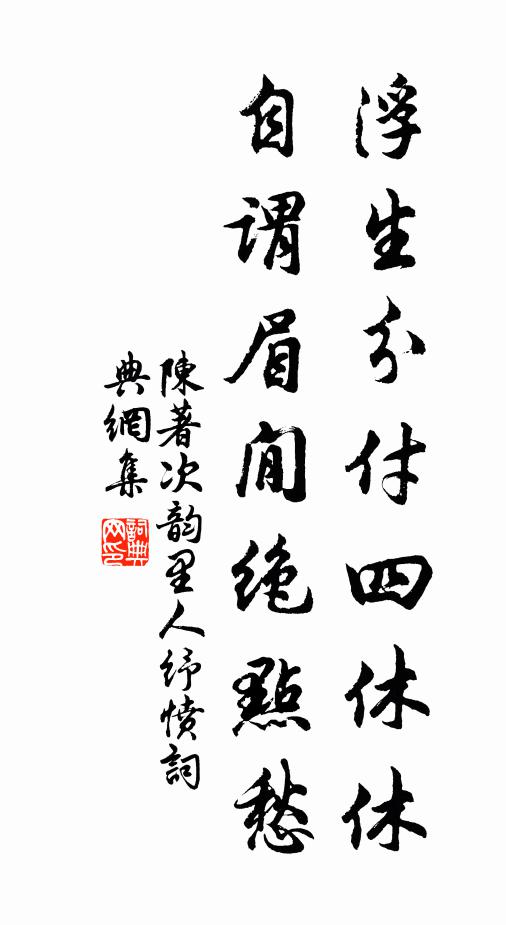 浮生分付四休休
自謂眉間絶點愁
陳著次韵里人紓憤詞
典網集
詞典
网印